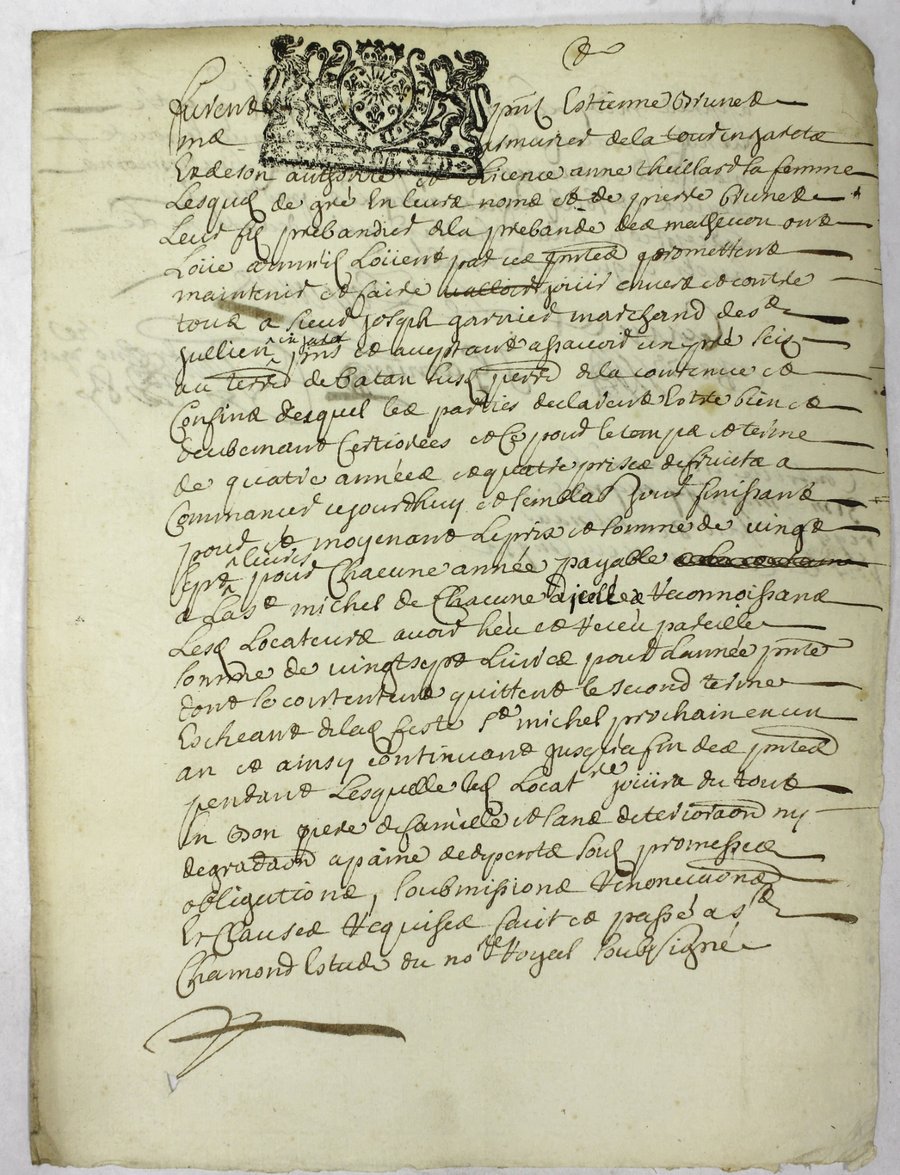 furent pnt Estienne Brunet
me armurier de la tour en jaretz
Et de son authorite et licence anne theillard sa femme
Lesquels de gré En leurs noms et de pierre brunet
Leur fils prebandier de la prebande des ont
Loüe Loüent par ces pntes promettent
maintenir et faire jouir envers et contre
tous a sieur joseph garnier marchand de st
jullien en jarest pnt et acceptant assavoir un pré scis
au de la contenue et
Confins desquels les parties declarent Estre bien et
deubement Certiorées et Ce pour le temps et terme
de quatre années et quatre prises de fruicts a
Commancer cejourdhuy et semblable jour finissant
pour et moyenant le prix et somme de vingt
sept livres pour Chacune année payable
a la st michel de Chacune Reconnoissans
Lesd Locateurs avoir heu et receu pareille
somme de vingt sept Livres pour L'année pnte
dont se contentent quittent le second terme
Escheant a lad feste st michel prochain en un
an et ainsy continuant jusqu'a fin des pntes
pendant Lesquelles led Locatre jouira du tout
En bon pere de famille et sans deterioraon ny
degradaon a paine de tous despens soubs promesses
obligations, soubmissions Renonciaons
Et Clauses Requises fait et passé a st
Chamond Estude du nore Royal soubsigné